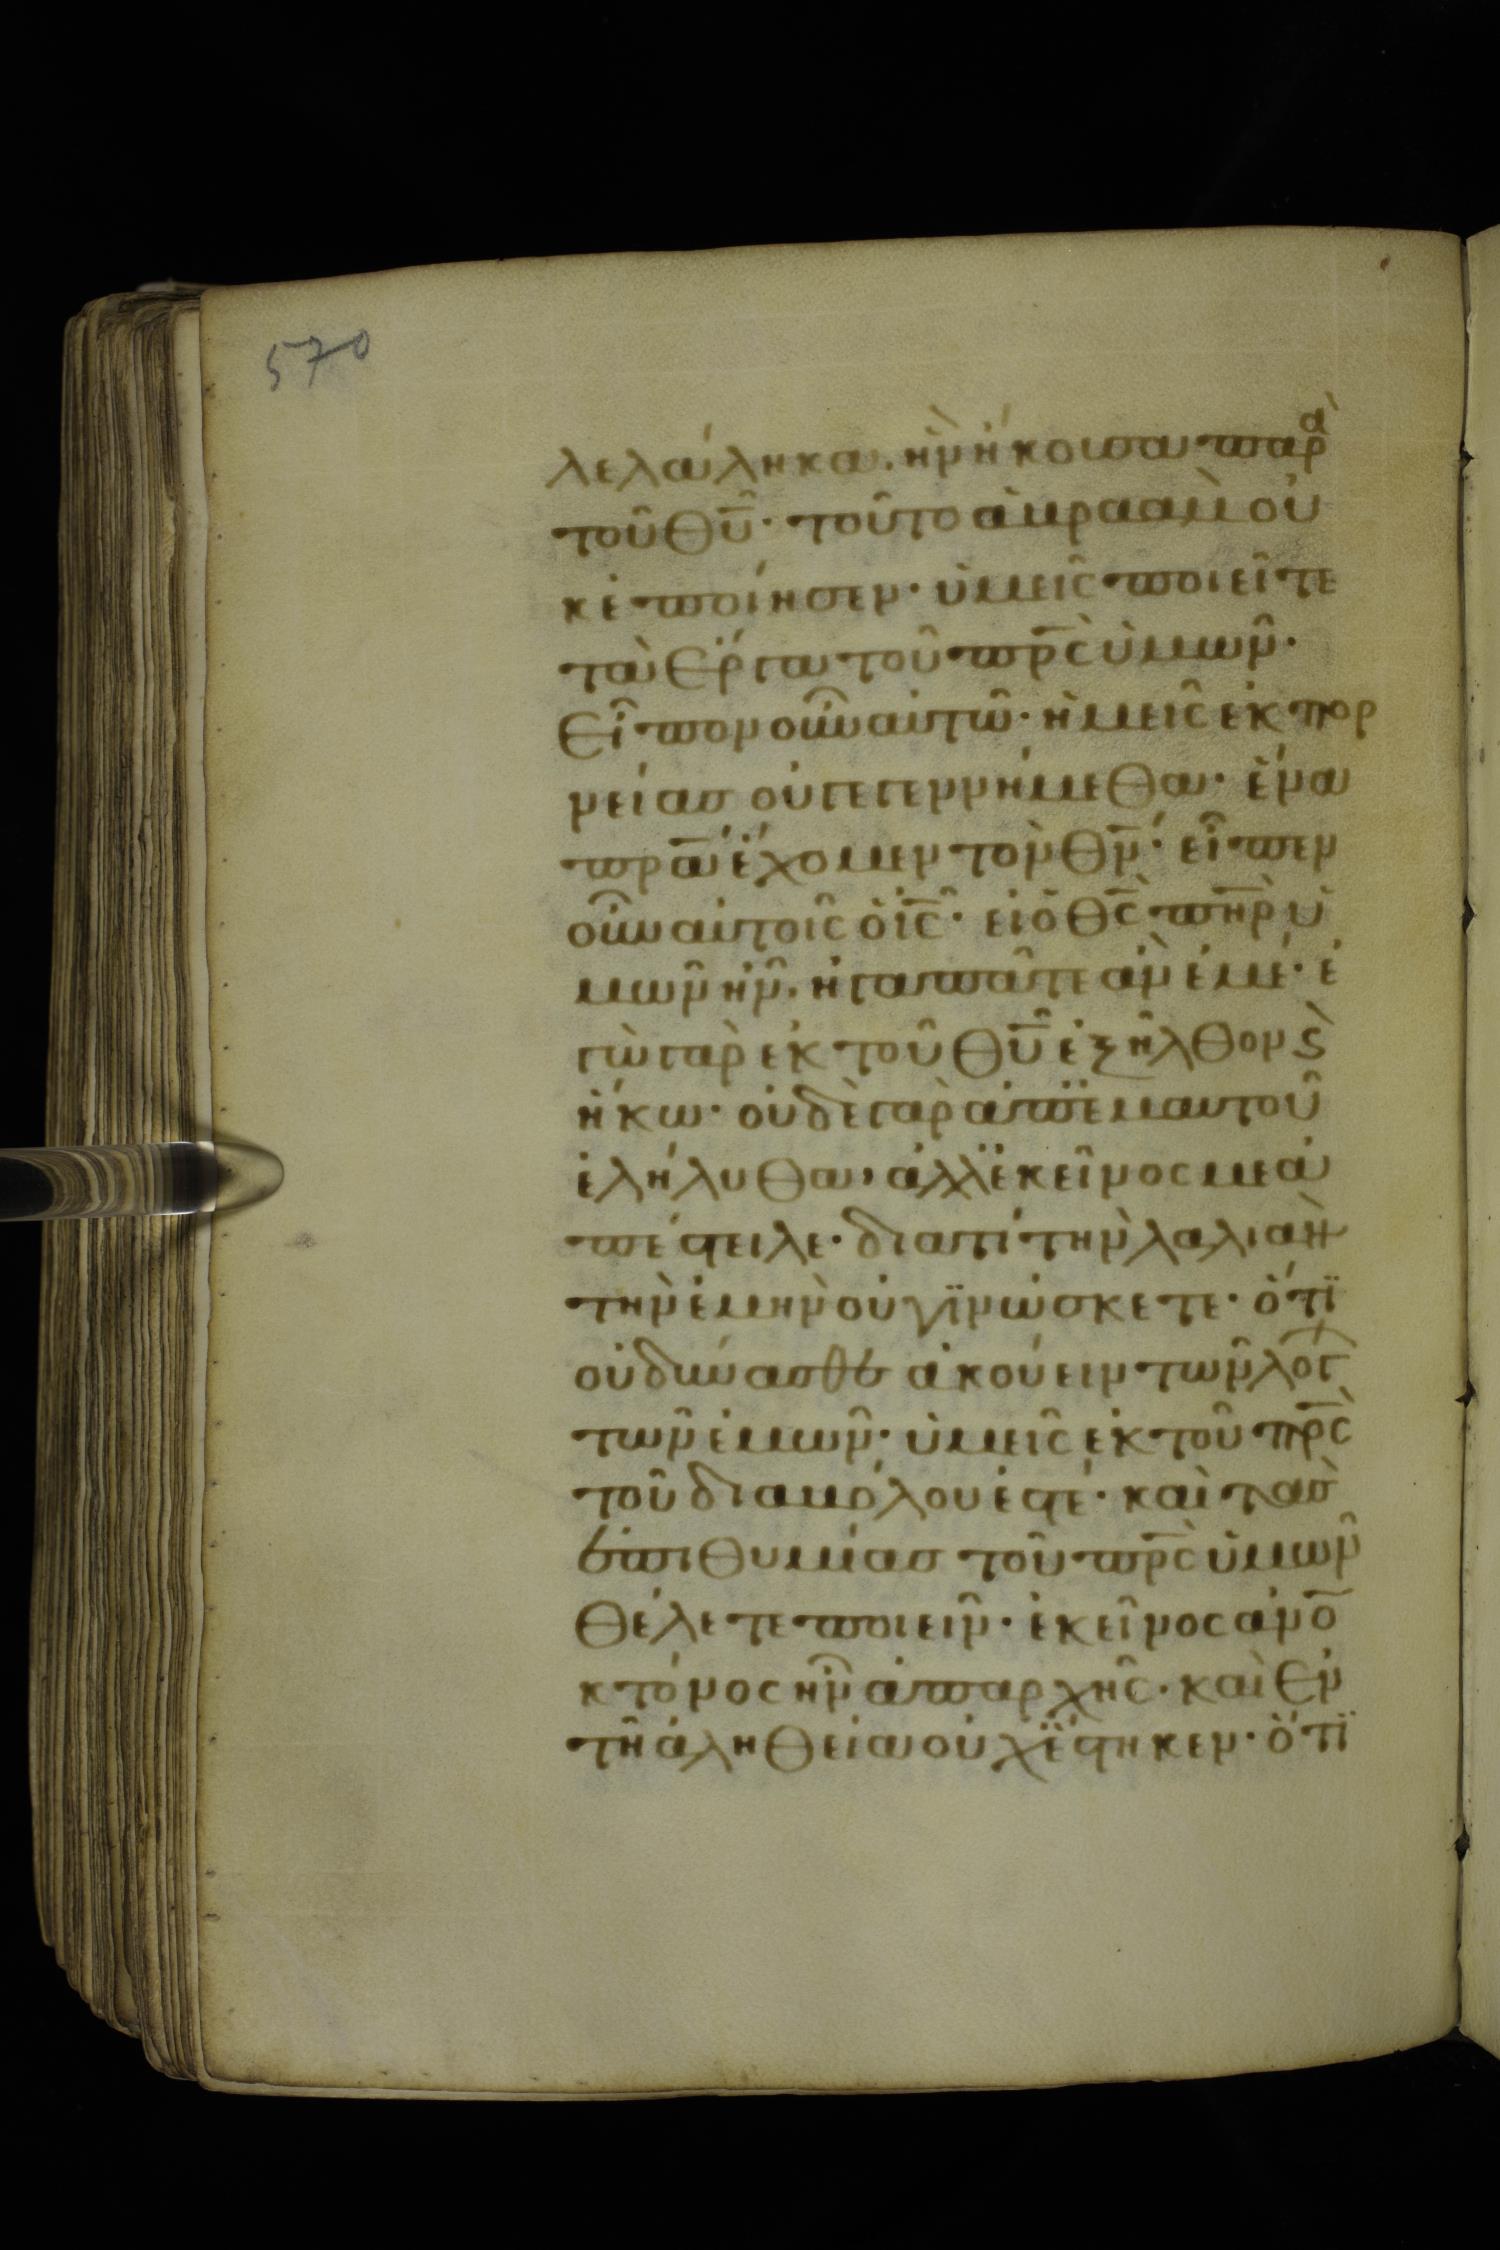 570
λελάληκα. ἣν ἤκουσα παρὰ
τοῦ θ̅υ̅· τοῦτο ἀβρααμ οὐ
κ ἐποίησεν· ὑμεῖς ποιεῖτε
τὰ ἔργα τοῦ π̅ρ̅ς̅ ὑμῶν·
εἶπον οὖν αὐτῶ· ἡμεῖς ἐκ πορ
νείας οὐ γεγεννήμεθα· ἕνα
π̅ρ̅α̅ ἔχομεν τὸν θ̅ν̅· εἶπεν
οὖν αὐτοῖς ὁ ι̅ς̅· εἰ ὁ θ̅ς̅ π̅η̅ρ̅ ὑ
μῶν ἦν, ἠγαπᾶτε ἂν ἐμέ· ἐ
γὼ γὰρ ἐκ τοῦ θ̅υ̅ ἐξῆλθον ϗ̀
ἥκω· οὐδὲ γὰρ ἀπ ἐμαυτοῦ
ἐλήλυθα, ἀλλ ἐκεῖνος με ἀ
πέστειλε· διατί τὴν λαλιὰν
τὴν ἐμὴν οὐ γινώσκετε· ὅτι
οὐ δύνασθε ἀκούειν τῶν λόγ
τῶν ἐμῶν· ὑμεῖς ἐκ τοῦ π̅ρ̅ς̅
τοῦ διαβόλου ἐστέ· καὶ τὰς
ἐπιθυμίας τοῦ π̅ρ̅ς̅ ὑμῶν
θέλετε ποιεῖν· ἐκεῖνος ἀν̅ο̅
κτόνος ἦν ἀπαρχῆς· καὶ ἐν
τῆ ἀληθεία οὐχ ἕστηκεν· ὅτι